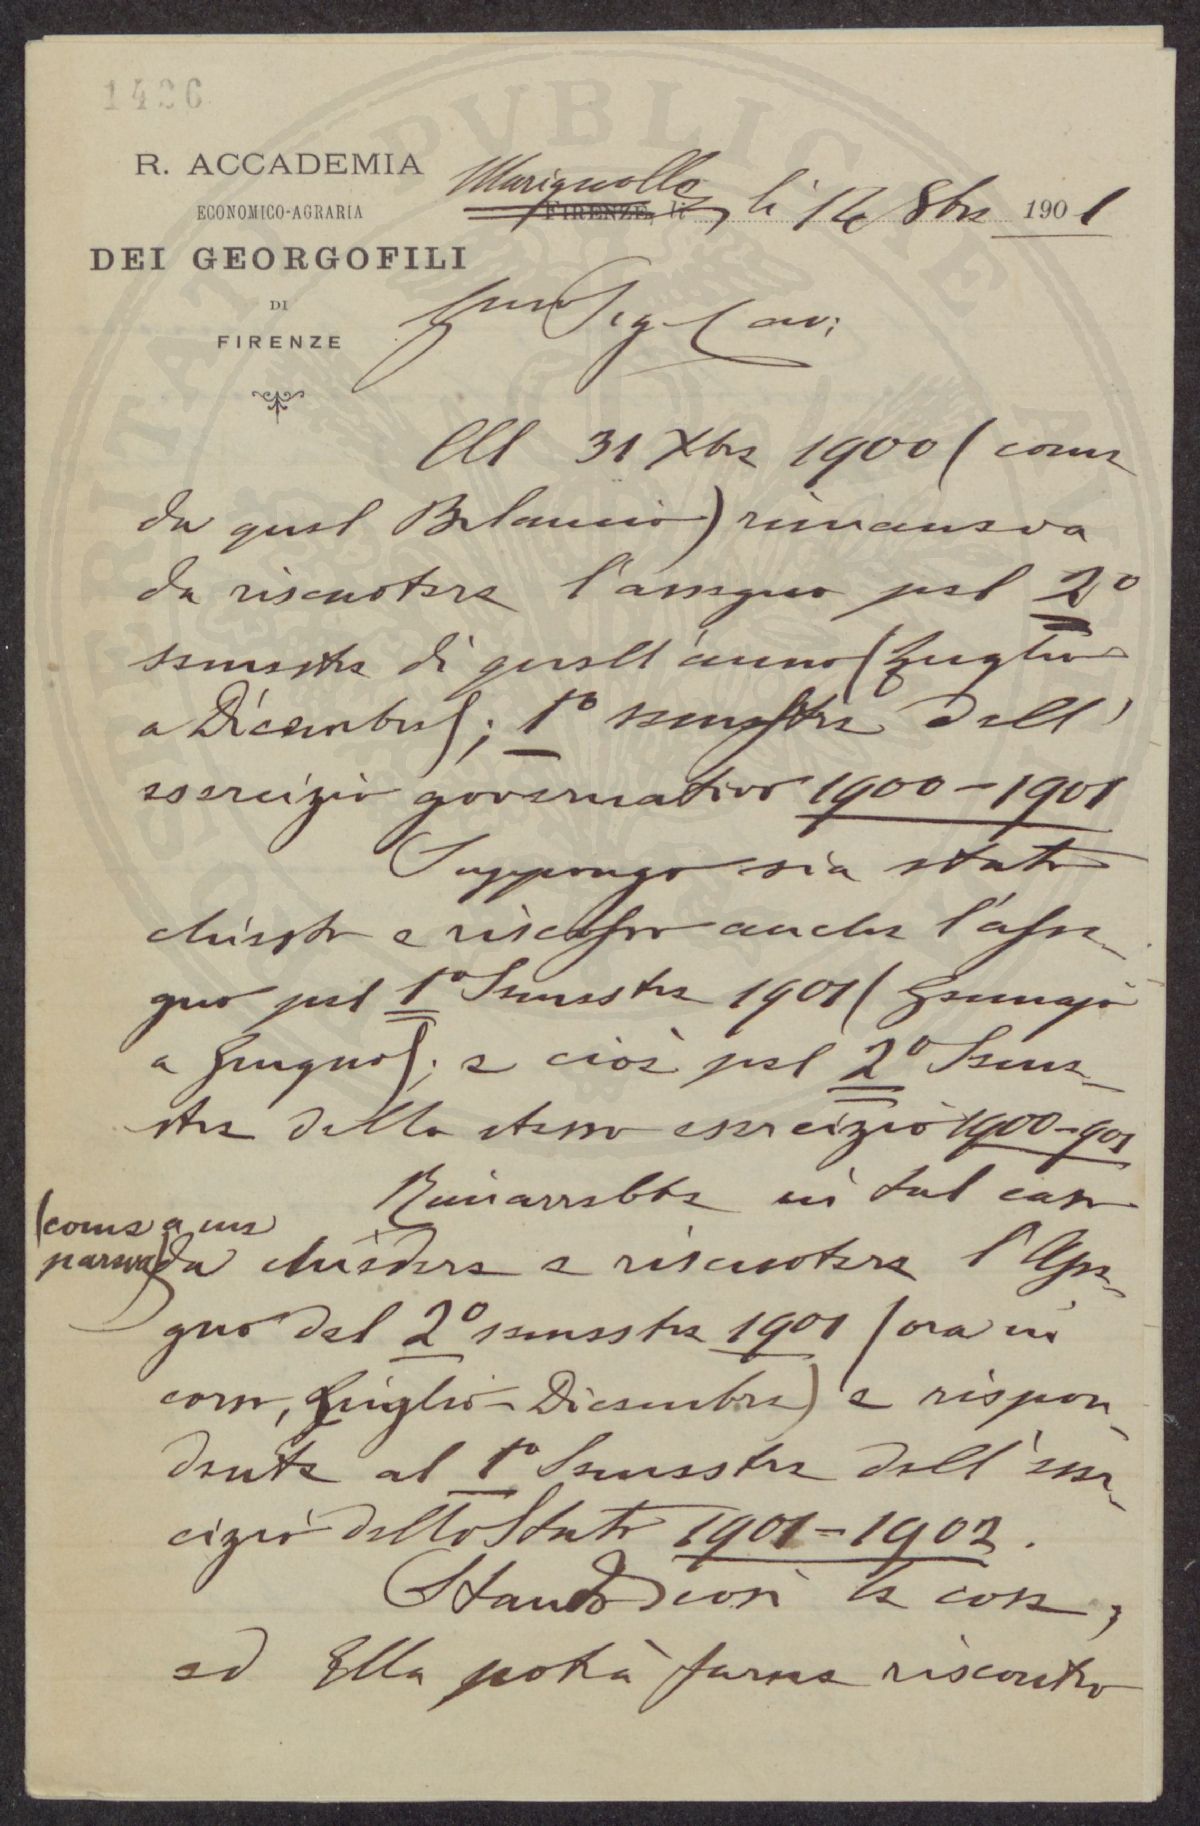 1426
R. ACCADEMIA
ECONOMICO-AGRARIA
DEI GEORGOFILI
DI
FIRENZE
Marignolle, li 12 8bre 1901
FIRENZE, lì
Sig Cav:
Al 31 Xbre 1900 (come
da quel Bilancio) rimaneva
da riscuotere l'assegno pel 2º
semestre di quell'anno (Luglio
a Dicembre); 1º semestre dell'
esercizio governativo 1900-1901
Suppongo sia stato
chiesto e riscosso anche l'asse-
gno pel 1º Semestre 1901 (Gennajo
a Giugno); e cioè pel 2º Seme-
stre dello stesso esercizio 1900-901
Rimarrebbe in tal caso
(come a me
pareva) da chiedere e riscuotere l'Asse-
gno del 2º semestre 1901 (ora in
corso, Luglio-Dicembre) e rispon-
dente al 1º Semestre dell'eser-
cizio dello Stato 1901=1902.
Stando così le cose,
ed Ella potrà farne riscontro